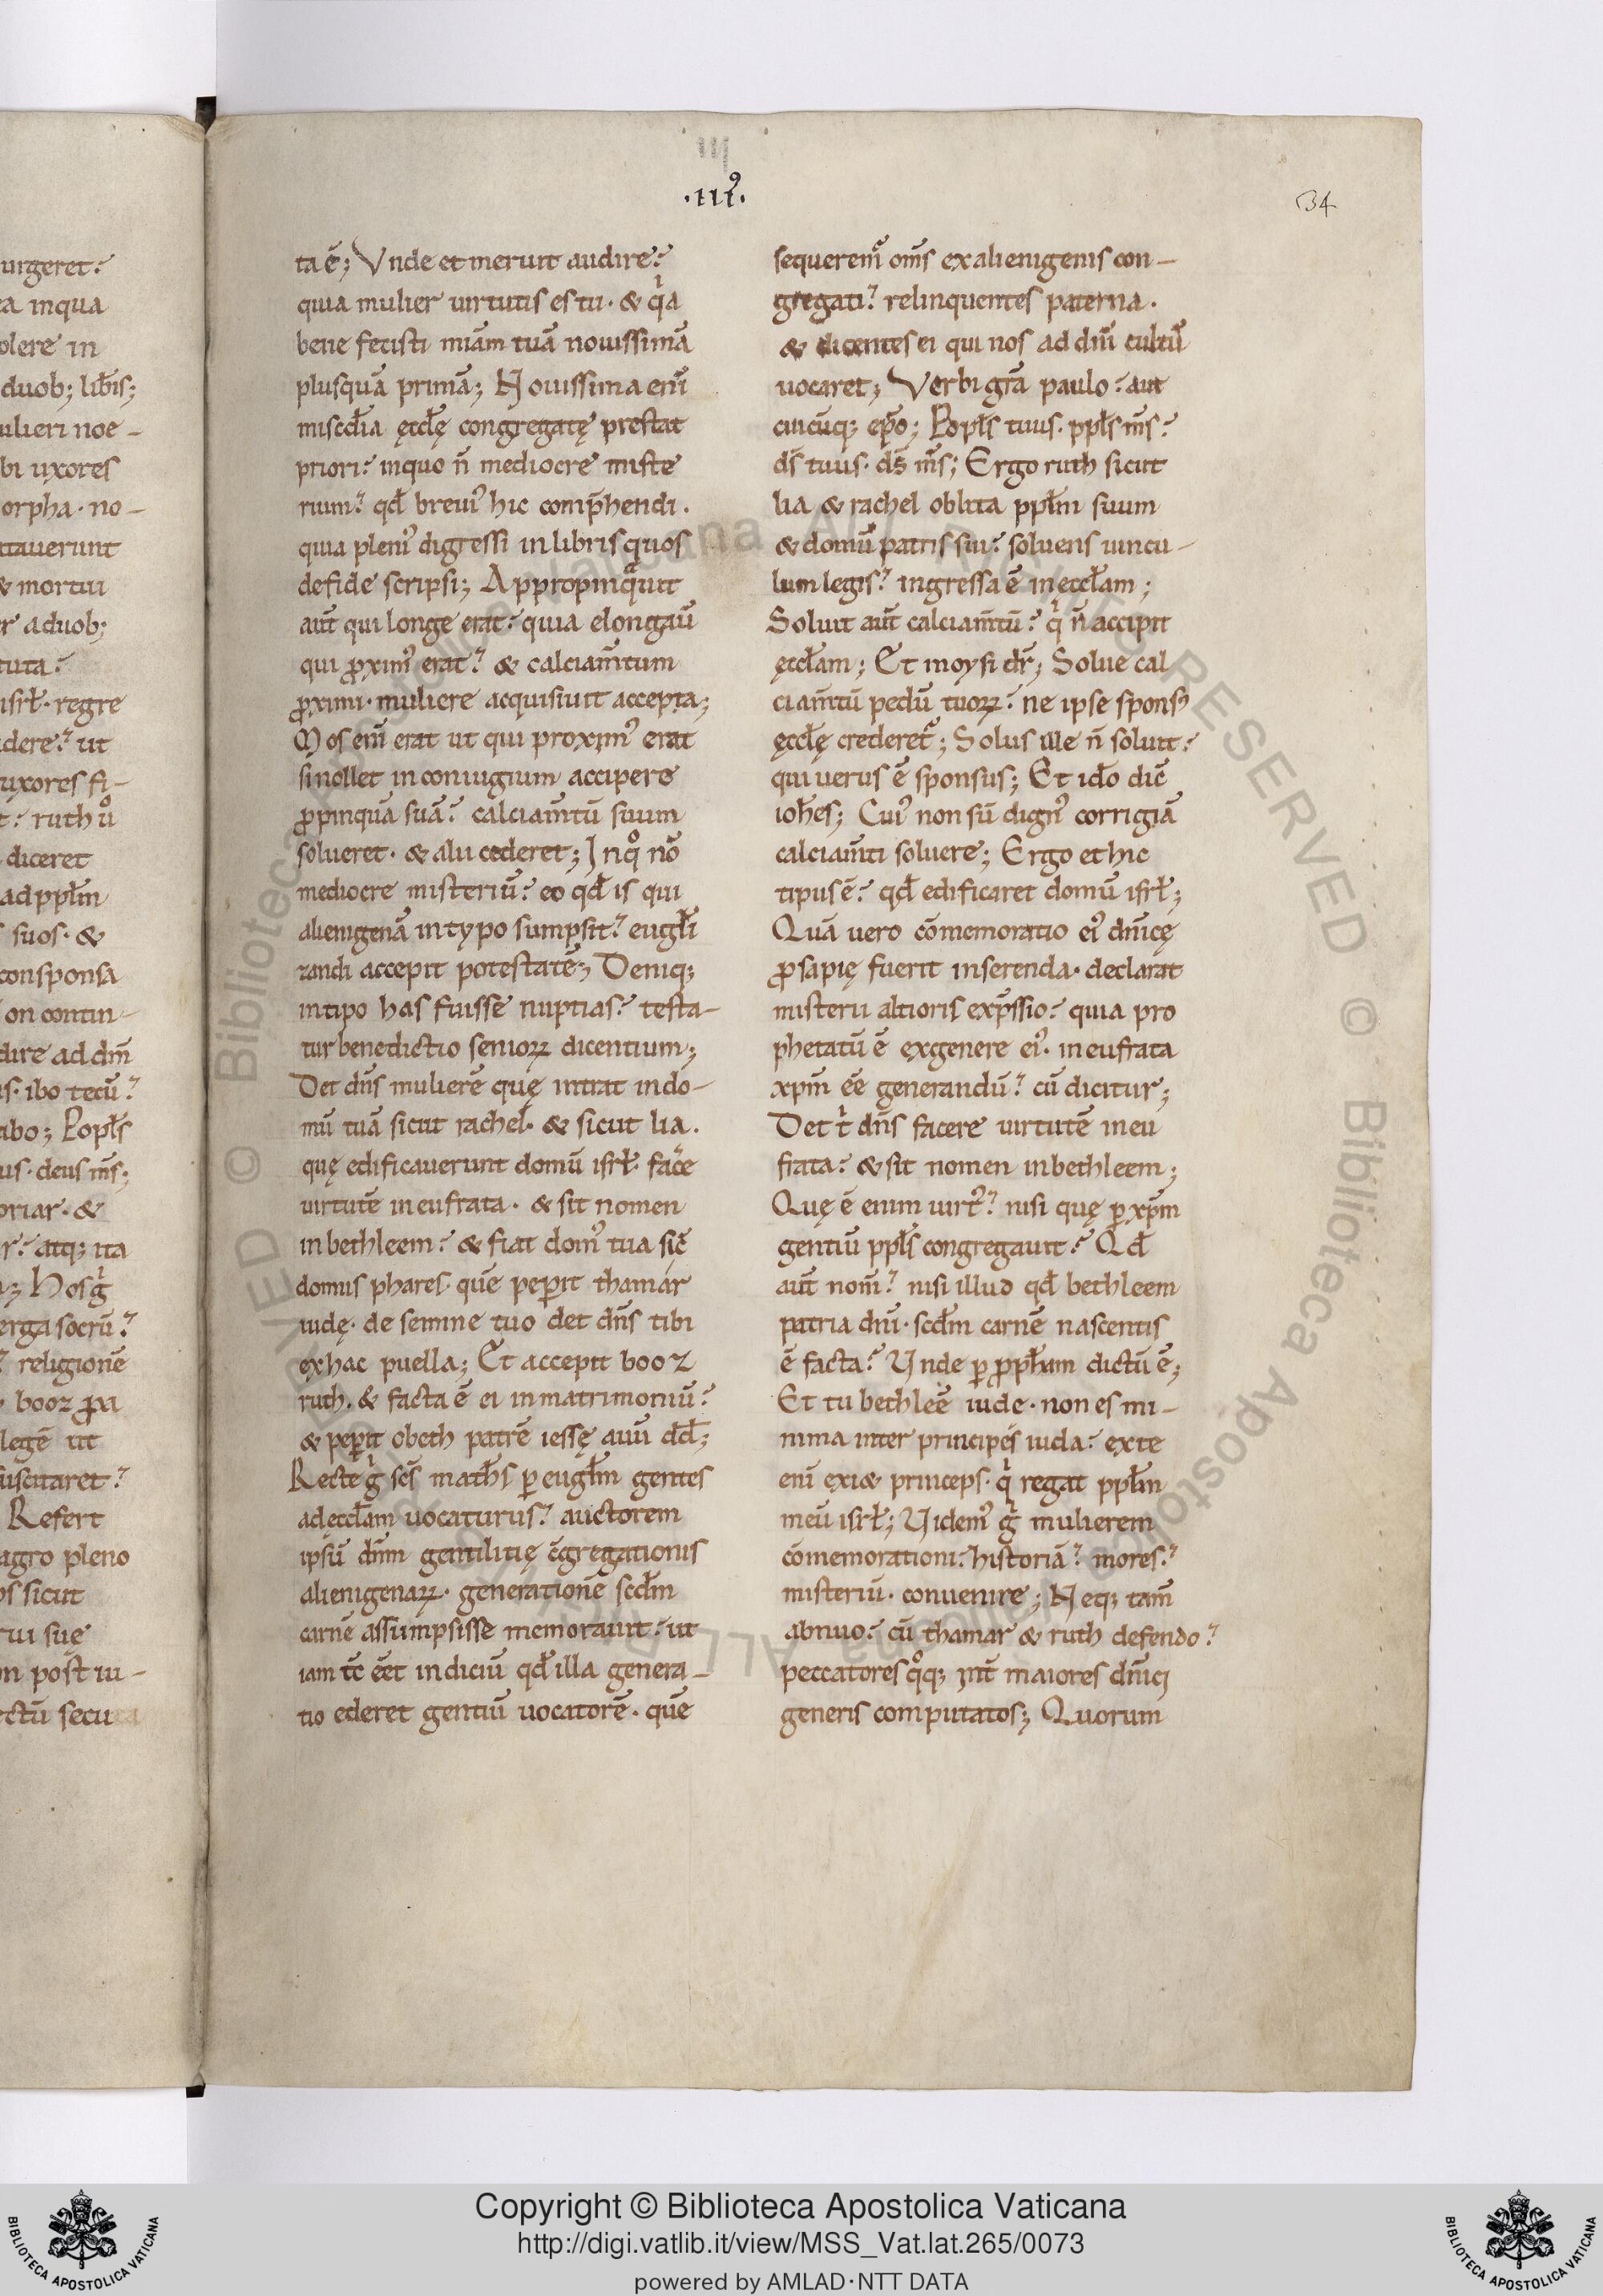 urgeret?
ea inqua
olere in
duob; lib̅is;
ulieri noe-
bi uxores
orpha· no-
ttauerunt
& mortui
er aduob;
tuta?
isrł· regre
idere? ut
uxores fi-
t? ruth ů
diceret
adppłm
suos· &
consponsa
on contin-
dire ad dn̅m
s· ibo tecū?
abo; Popłs
us· deus m̅s;
oriar· &
r? atq; ita
Hos g̊
erga socrū?
religionē
booz ꝓxi
legē ut
suscitaret?
Refert
agro pleno
os sicut
rui sue
m post iu-
ectū secu
III
·IIIꝰ·
34
ta ē; Vnde et meruit audire?
quia mulier uirtutis es tu· & qͥa
bene fecisti miām tuā nouissimā
plusquā primā; Nouissima enī
miscd̄ia ęccłę congregatę prestat
priori? inquo n̄ mediocre miste
rium? qđ breuiꝰ hic comp̄hendi·
quia pleniꝰ digressi inlibris quos
defide scripsi; Appropinqͣuit
aut̄ qui longe erat? quia elongau̅
qui ꝓximꝰ erat? & calciam̄tum
ꝓximi· muliere acquisiuit accepta;
Mos enī erat ut qui proximꝰ erat
si nollet in coniugium accipere
ꝓpinquā suā? calciam̄tū suum
solueret· & alii cederet; Inqͦ nō
mediocre misteriū? eo qđ is qui
alienigenā intypo sumpsit? eugłi
zandi accepit potestatē; Deniq;
intipo has fuisse nuptias? testa-
tur benedictio senioꝝ dicentium;
Det dn̅s mulierē quę intrat indo-
mū tuā sicut rachel· & sicut lia·
quę edificauerunt domū isrł· fac̄e
uirtutē ineufrata· & sit nomen
inbethleem? & fiat domꝰ tua sic̄
domus phares· quē peꝑit thamar
iudę· de semine tuo det dn̅s tibi
exhac puella; Et accepit booz
ruth· & facta ē ei inmatrimoniū?
& peꝑit obeth patrē iessę aui dđ;
Recte g̊ sc̄s math̄s ꝑ eugłm gentes
adęccłam uocaturus? auctorem
ipsū dn̅m gentilitię c̄gregationis
alienigenaꝝ· generationē scđm
carnē assumpsisse memorauit? ut
iam tc̄ eēt indiciū qđ illa genera-
tio ederet gentiū uocatorē· quē
sequeremꝰ om̅s exalienigenis con-
gregati? relinquentes paterna·
& dicentes ei qui nos ad dn̅i cultū
uocaret; Verbi gr̄a paulo? aut
cuicūq; ep̄o; Popłs tuus· ppłs m̅s?
ds̄ tuus· ds̄ m̅s; Ergo ruth sicut
lia & rachel oblita ppłm suum
& domū patris sui? soluens uincu-
lum legis? ingressa ē ineccłam;
Soluit aut̄ calciam̄tū? qͥ n̄ accipit
ęccłam; Et moysi dr̄; Solue cal
ciam̄tū pedū tuoꝝ? ne ipse sponsꝰ
ęccłę crederet᷑; Solus ille n̄ soluit?
qui uerus ē sponsus; Et iđo dic̄
ioh̅es; Cuiꝰ non sū dignꝰ corrigiā
calciam̄ti soluere; Ergo et hic
tipus ē? qđ edificaret domū isrł;
Quā uero cōmemoratio eiꝰ dn̅icę
ꝓsapię fuerit inserenda· declarat
misterii altioris exp̄ssio? quia pro
phetatū ē exgenere eiꝰ· ineufrata
xp̅m eē generandū? cū dicitur;
Det tͥ dn̅s facere uirtutē ineu
frata? & sit nomen inbethleem;
Quę ē enim uirtꝰ? nisi quę ꝑ xp̅m
gentiū ppłs congregauit? Qđ
aut̄ nom̅? nisi illud qđ bethleem
patria dn̅i· scđm carnē nascentis
ē facta? Unde ꝑ ꝓpħam dictū ē;
Et tu bethleē iude· non es mi-
nima inter principes iuda? exte
enī exi& princeps· qͥ regat ppłm
meū isrł; Uidemꝰ g̊ mulierem
cōmemorationi? historiā? mores?
misteriū· conuenire; Neq; tam̅
abnuo? cū thamar & ruth defendo?
peccatores qͦq; int̄ maiores dn̅ici
generis computatos; Quorum
© Biblioteca Apostolica Vaticana ALL RIGHTS RESERVED
Copyright © Biblioteca Apostolica Vaticana
http://digi.vatlib.it/view/MSS_Vat.lat.265/0073
powered by AMLAD·NTT DATA
BIBLIOTECA APOSTOLICA VATICANA
BIBLIOTECA APOSTOLICA VATICANA